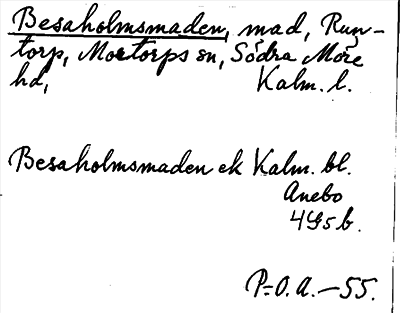 Besaholmsmaden, mad, Run-
torp, Mortorps sn, Södra Möre
hd, Kalm. l.
Besaholmsmaden ek Kalm. bl.
Anebo
4G5b.
P=O.A.—55.